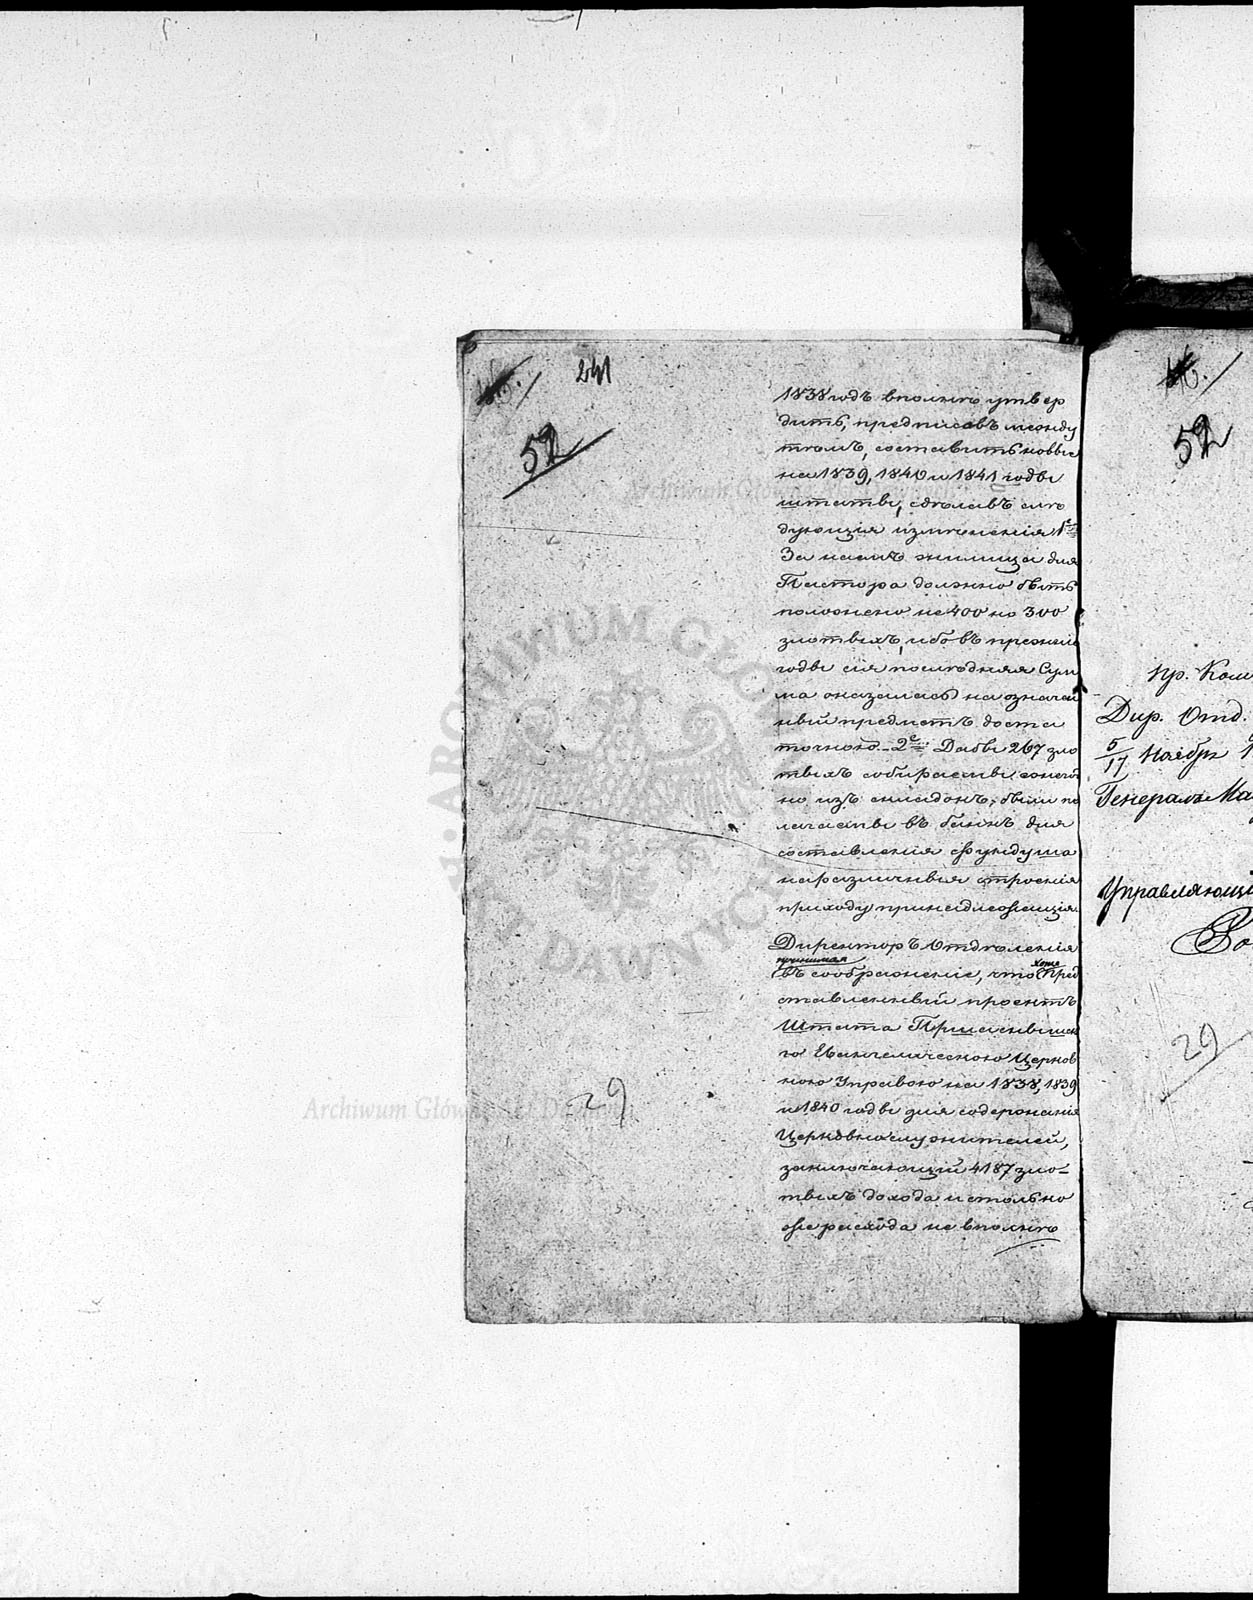 241
52
1838 годъ вполнѣ утвер
дить, предписавъ между
тѣмъ, составить новые
на 1839, 1840 и 1841 годы
штаты, сдѣлавъ слѣ
дующія измѣненія 1е
За наемъ жилища для
Пастора должно быть
положено не 400 но 300
злотыхъ, ибо въ прежніе
годы сія послѣдняя Сум
ма оказалась на означен
ный предметъ доста
точною. 2е Дабы 267 зло
тыхъ собираемые ежегод
но изъ складокъ, были по
лагаемы въ банкъ для
составленія фундуша
на различныя строенія
приходу принадлежащія
Директоръ Отдѣленія
принимая хотя
въ соображеніе, что пред
ставленный проектъ
Штата
го Евангелическою Церков
ною Управою на 1838, 1839
и 1840 годы для содержанія
Церковнослужителей,
заключающій 4187 зло-
тыхъ дохода и столько
же расхода не вполнѣ
29
52
пр. Ком
Дир. Отд.
5/17 Ноября 1
Генералъ Ма
Управляющі
29
Archiwum Główne Akt Dawnych
ARCHIWUM GŁÓWNE AKT DAWNYCH